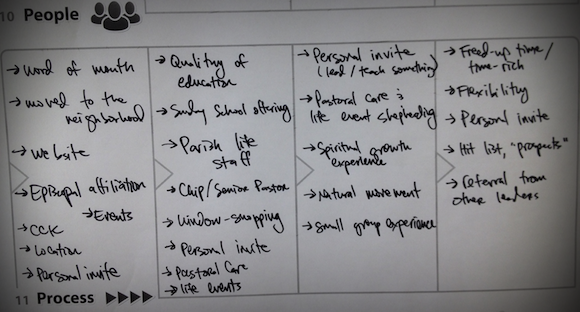 10 People
→ word of mouth
→ moved to the
neighborhood
→ website
→ Episcopal affiliation
→ Events
→ CCK
→ Location
→ Personal invite
→ Quality of
education
→ Sunday School offering
→ Parish life
staff
→ Chip/Senior Pastor
→ Window-shopping
→ Personal invite
→ Pastoral Care
→ life events
→ Personal invite
(lead/teach something)
→ Pastoral care &
life event shepherding
→ Spiritual growth
experience
→ Natural movement
→ Small group experience
→ Freed-up time/
time-rich
→ Flexibility
→ Personal invite
→ Hit list, "prospects"
→ referral from
other leaders
11 Process